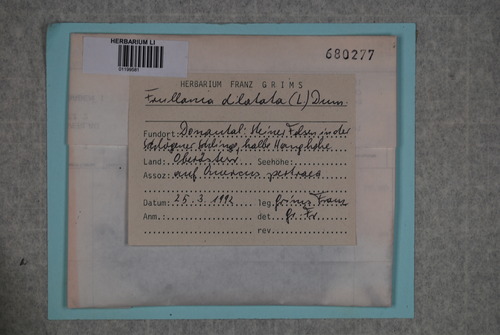 HERBARIUM LI
680277
HERBARIUM FRANZ GRIMS
Frullania dilatata (L.) Dum.
Fundort: Donautal: kleiner Felsen in der
Schlögener Schlinge, halbe Hanghöhe
Land: Oberösterr. Seehöhe:
Assoz: auf Quercus petraea
Datum: 25.3.1992 leg. Grims Franz
Anm. det. Gr. Fr.
rev.